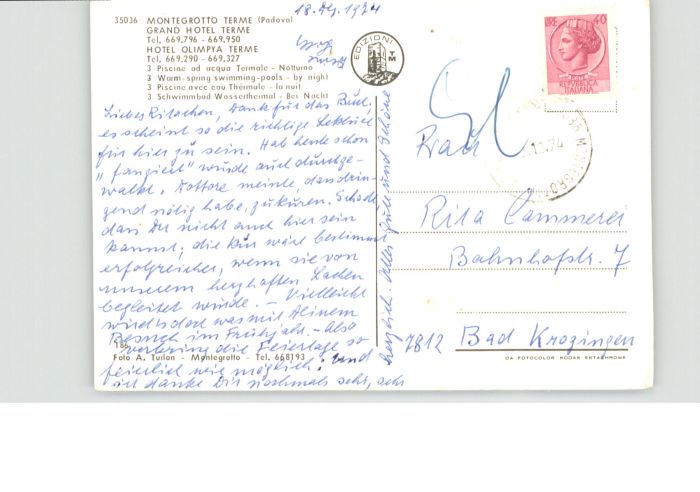 18. Dez. 1974
35036 MONTEGROTTO TERME (Padova)
GRAND HOTEL TERME
Tel. 669.796 - 669.950
HOTEL OLIMPYA TERME
Tel. 669.290 - 669.327
3 Piscine ad acqua Termale - Notturno
3 Warm-spring swimming-pools - by night
3 Piscine avec eau Thérmale - la nuit
3 Schwimmbad Wasserthermal - Bei Nacht
EDIZIONI
TM
LIRE 40
REPUBBLICA
ITALIANA
Liebes Ritachen, Dank für das Buch,
es scheint so die richtige Lektüre
für hier zu sein. Hab heute schon
"fangiert" wurde auch durchge-
walkt. Dottore meinte, dass drin-
gend nötig habe, zu kuren. Schade
dass Du nicht auch hier sein
kannst; die Kur wäre bestimmt
erfolgreicher, wenn sie von
unserem herzhaften Lachen
begleitet würde. - Vielleicht
wird's doch was mit Deinem
Besuch im Frühjahr. - Also
verbring die Feiertage so
feierlich wie möglich; und
ich danke Dir nochmals sehr, sehr
herzlich. Alles Gute und Schöne
186
Foto A. Tulan - Montegrotto - Tel. 668193
Frau
Rita Cammerer
Bahnhofstr. 7
7812 Bad Krozingen
DA FOTOCOLOR KODAK EKTACHROME